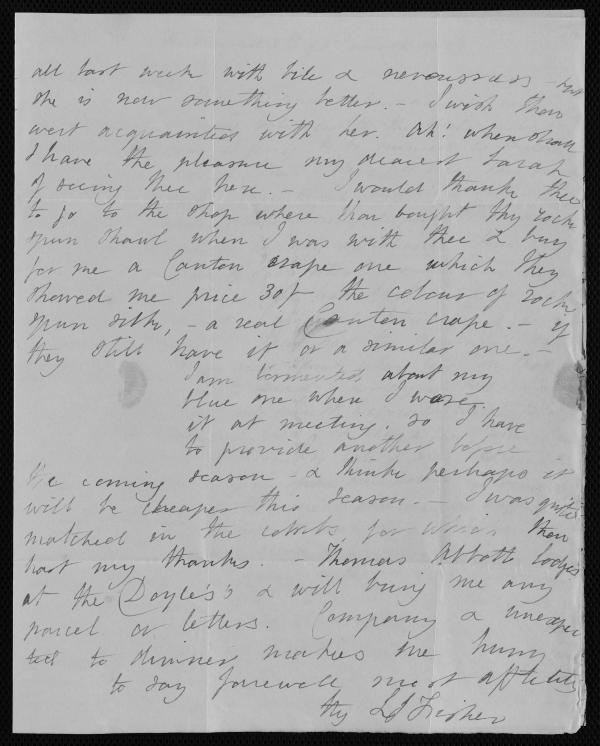 all last week with bile & nervousness - but
she is now something better. - I wish thou
wert acquainted with her. Oh! when shall
I have the pleasure my dearest Sarah
of seeing thee here. - I would thank thee
to go to the shop where thou bought thy rock
spun shawl when I was with thee & buy
for me a Canton crape one which they
showed me price 30/ the colour of rock
spun silk, - a real Canton crape. - if
they still have it or a similar one. -
I am tormented about my
blue one when I wore
it at meeting. so I have
to provide another before
the coming season - & think perhaps it
will be cheaper this season. - I was quite
matched in the for which thou
hast my thanks. - Thomas Abbott lodges
at the Doyle's & will bring me any
parcel or letters. Company & unexpec
ted to dinner makes me hurry
to say farewell most affectly
thy LJ Fisher